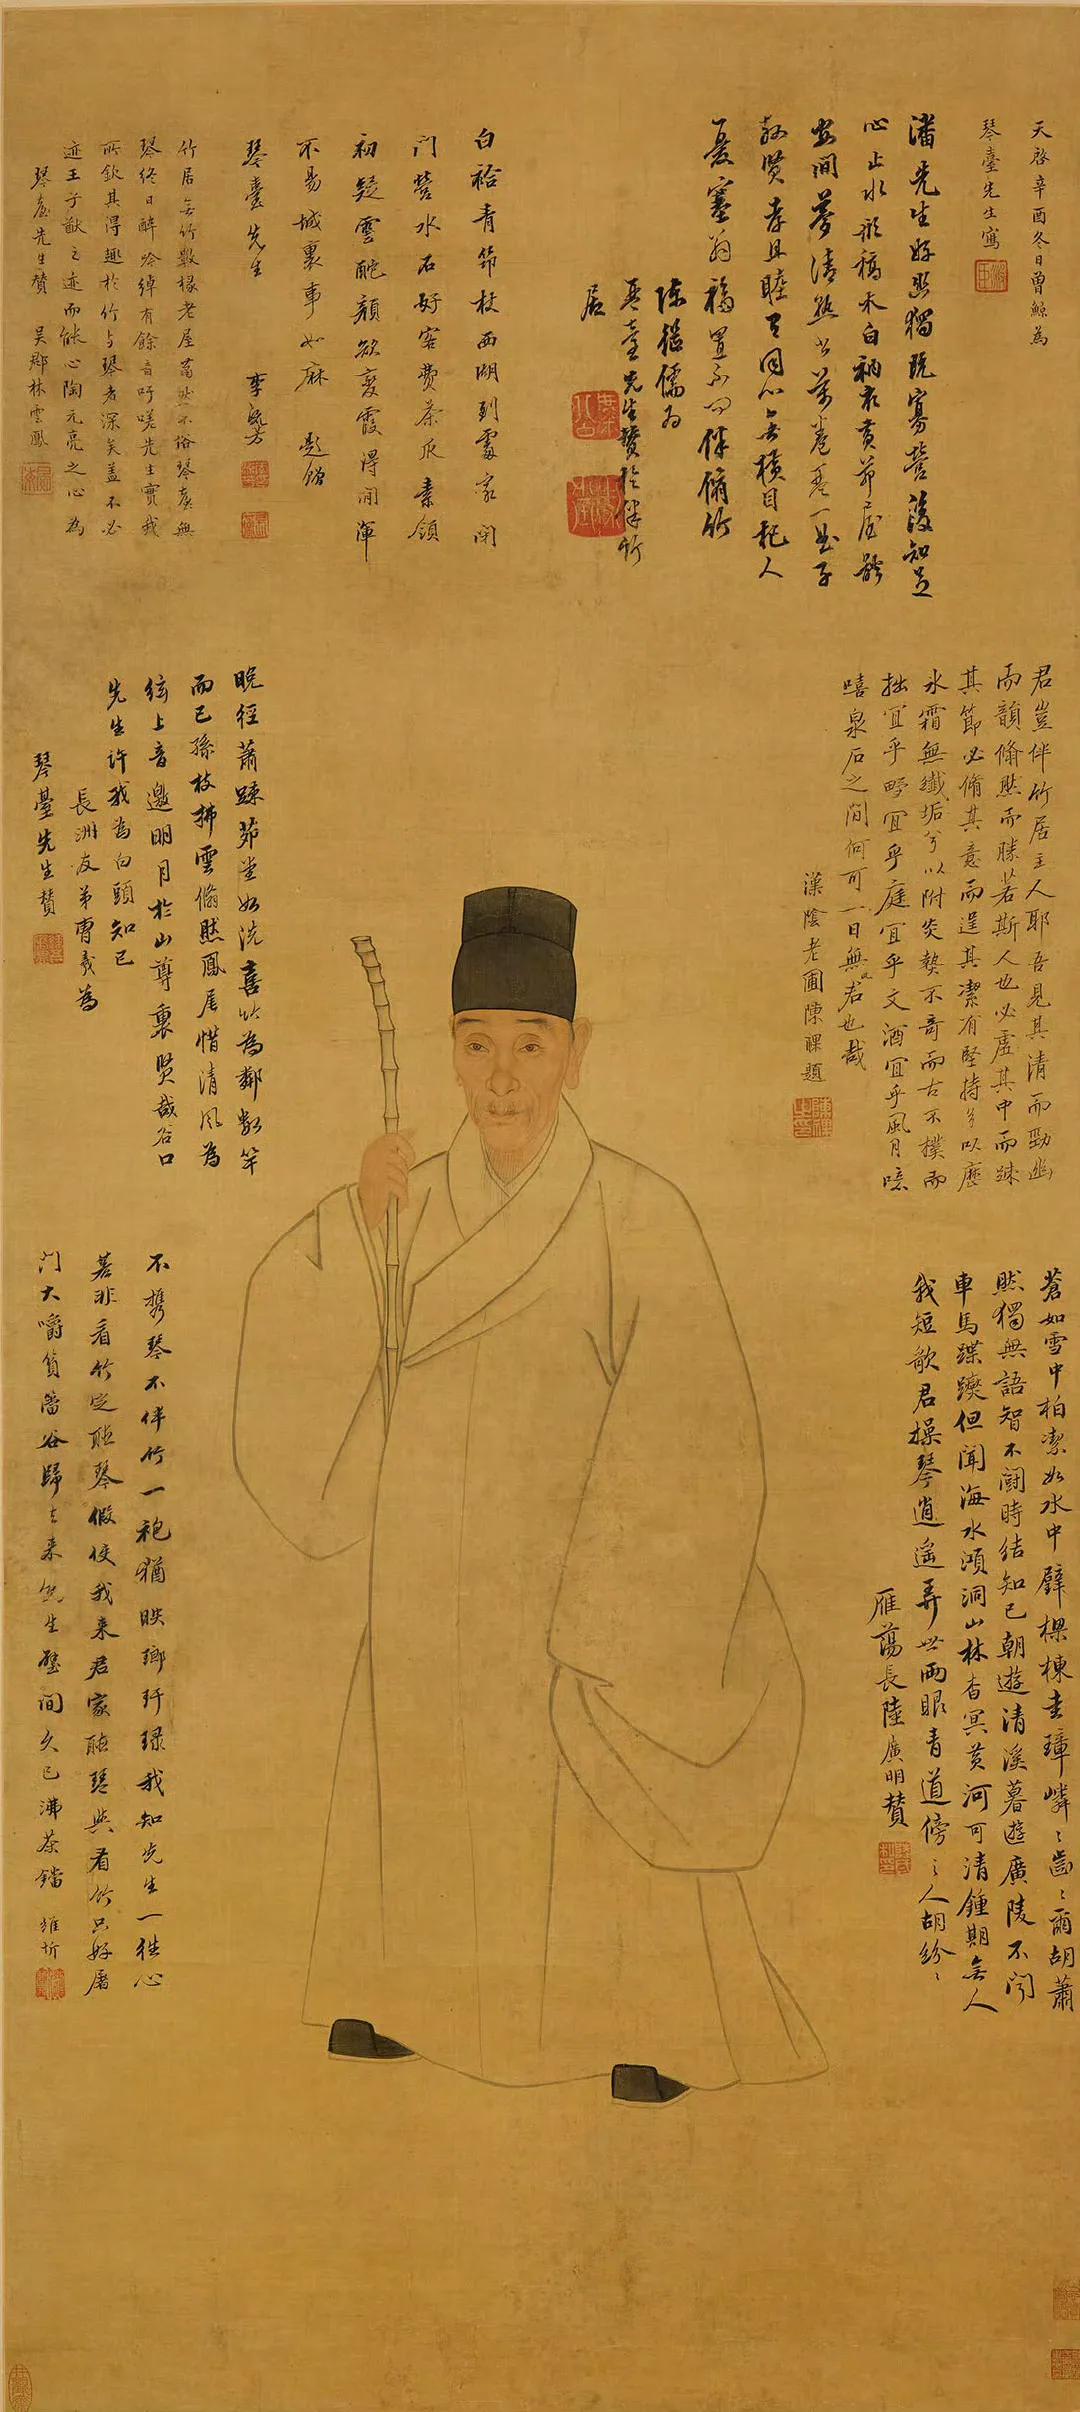 天啓辛酉冬日曾鯨為
琴臺先生寫
潘先生好與獨既寡營復知足
心止水形槁木白衲衣黃茆屋齡
安閒夢清熟書萬卷琴一曲子
孫賢孝且睦百同心無橫目杞人
憂塞翁福置不問伴脩竹
陳繼儒為
琴臺先生贊於伴竹
居
白袷青筇杖西湖到處家閉
門營水石好客費茶瓜素領
初疑雲酡顏欲變霞得閒渾
不易城裏事如麻 題贈
琴臺先生 李流芳
竹居無竹數椽老屋蕭然不俗琴臺無
琴終日醉吟綽有餘音吁嗟先生實我
所欽其得趣於竹與琴者深矣蓋不必
迹王子猷之迹而能心陶元亮之心為
琴臺先生贊 吳郡林雲鳳
君豈伴竹居主人耶吾見其清而勁幽
而韻翛然而勝若斯人也必虛其中而踈
其節必脩其意而逞其潔有堅持兮以歷
冰霜無纖垢兮以附炎熱不奇而古不樸而
拙宜乎野宜乎庭宜乎文酒宜乎風月噫
嘻泉石之間何可一日無君也哉
漢陰老圃陳祼題
晚徑蕭踈茆堂如洗喜竹為鄰數竿
而已孫枝拂雲翛然鳳尾惜清風為
絃上音邀明月於山尊裏賢哉谷口
先生許我為白頭知己
長洲友弟曹羲為
琴臺先生贊
蒼如雪中柏潔如水中璧棵棟圭璋嶙嶙齒齒爾胡蕭
然獨無語智不鬬時結知己朝遊清溪暮遊廣陵不聞
車馬蹀躞但聞海水澒洞山林杳冥黃河可清鍾期無人
我短歌君操琴逍遙弄世兩眼青道傍之人胡紛紛
雁蕩長陸廣明贊
不携琴不伴竹一袍猶映瑯玕琭我知先生一往心
若非看竹定聽琴假使我來君家聽琴與看竹只好屠
門大嚼篔簹谷歸去來兮生壁間久已沸茶鐺 維圻